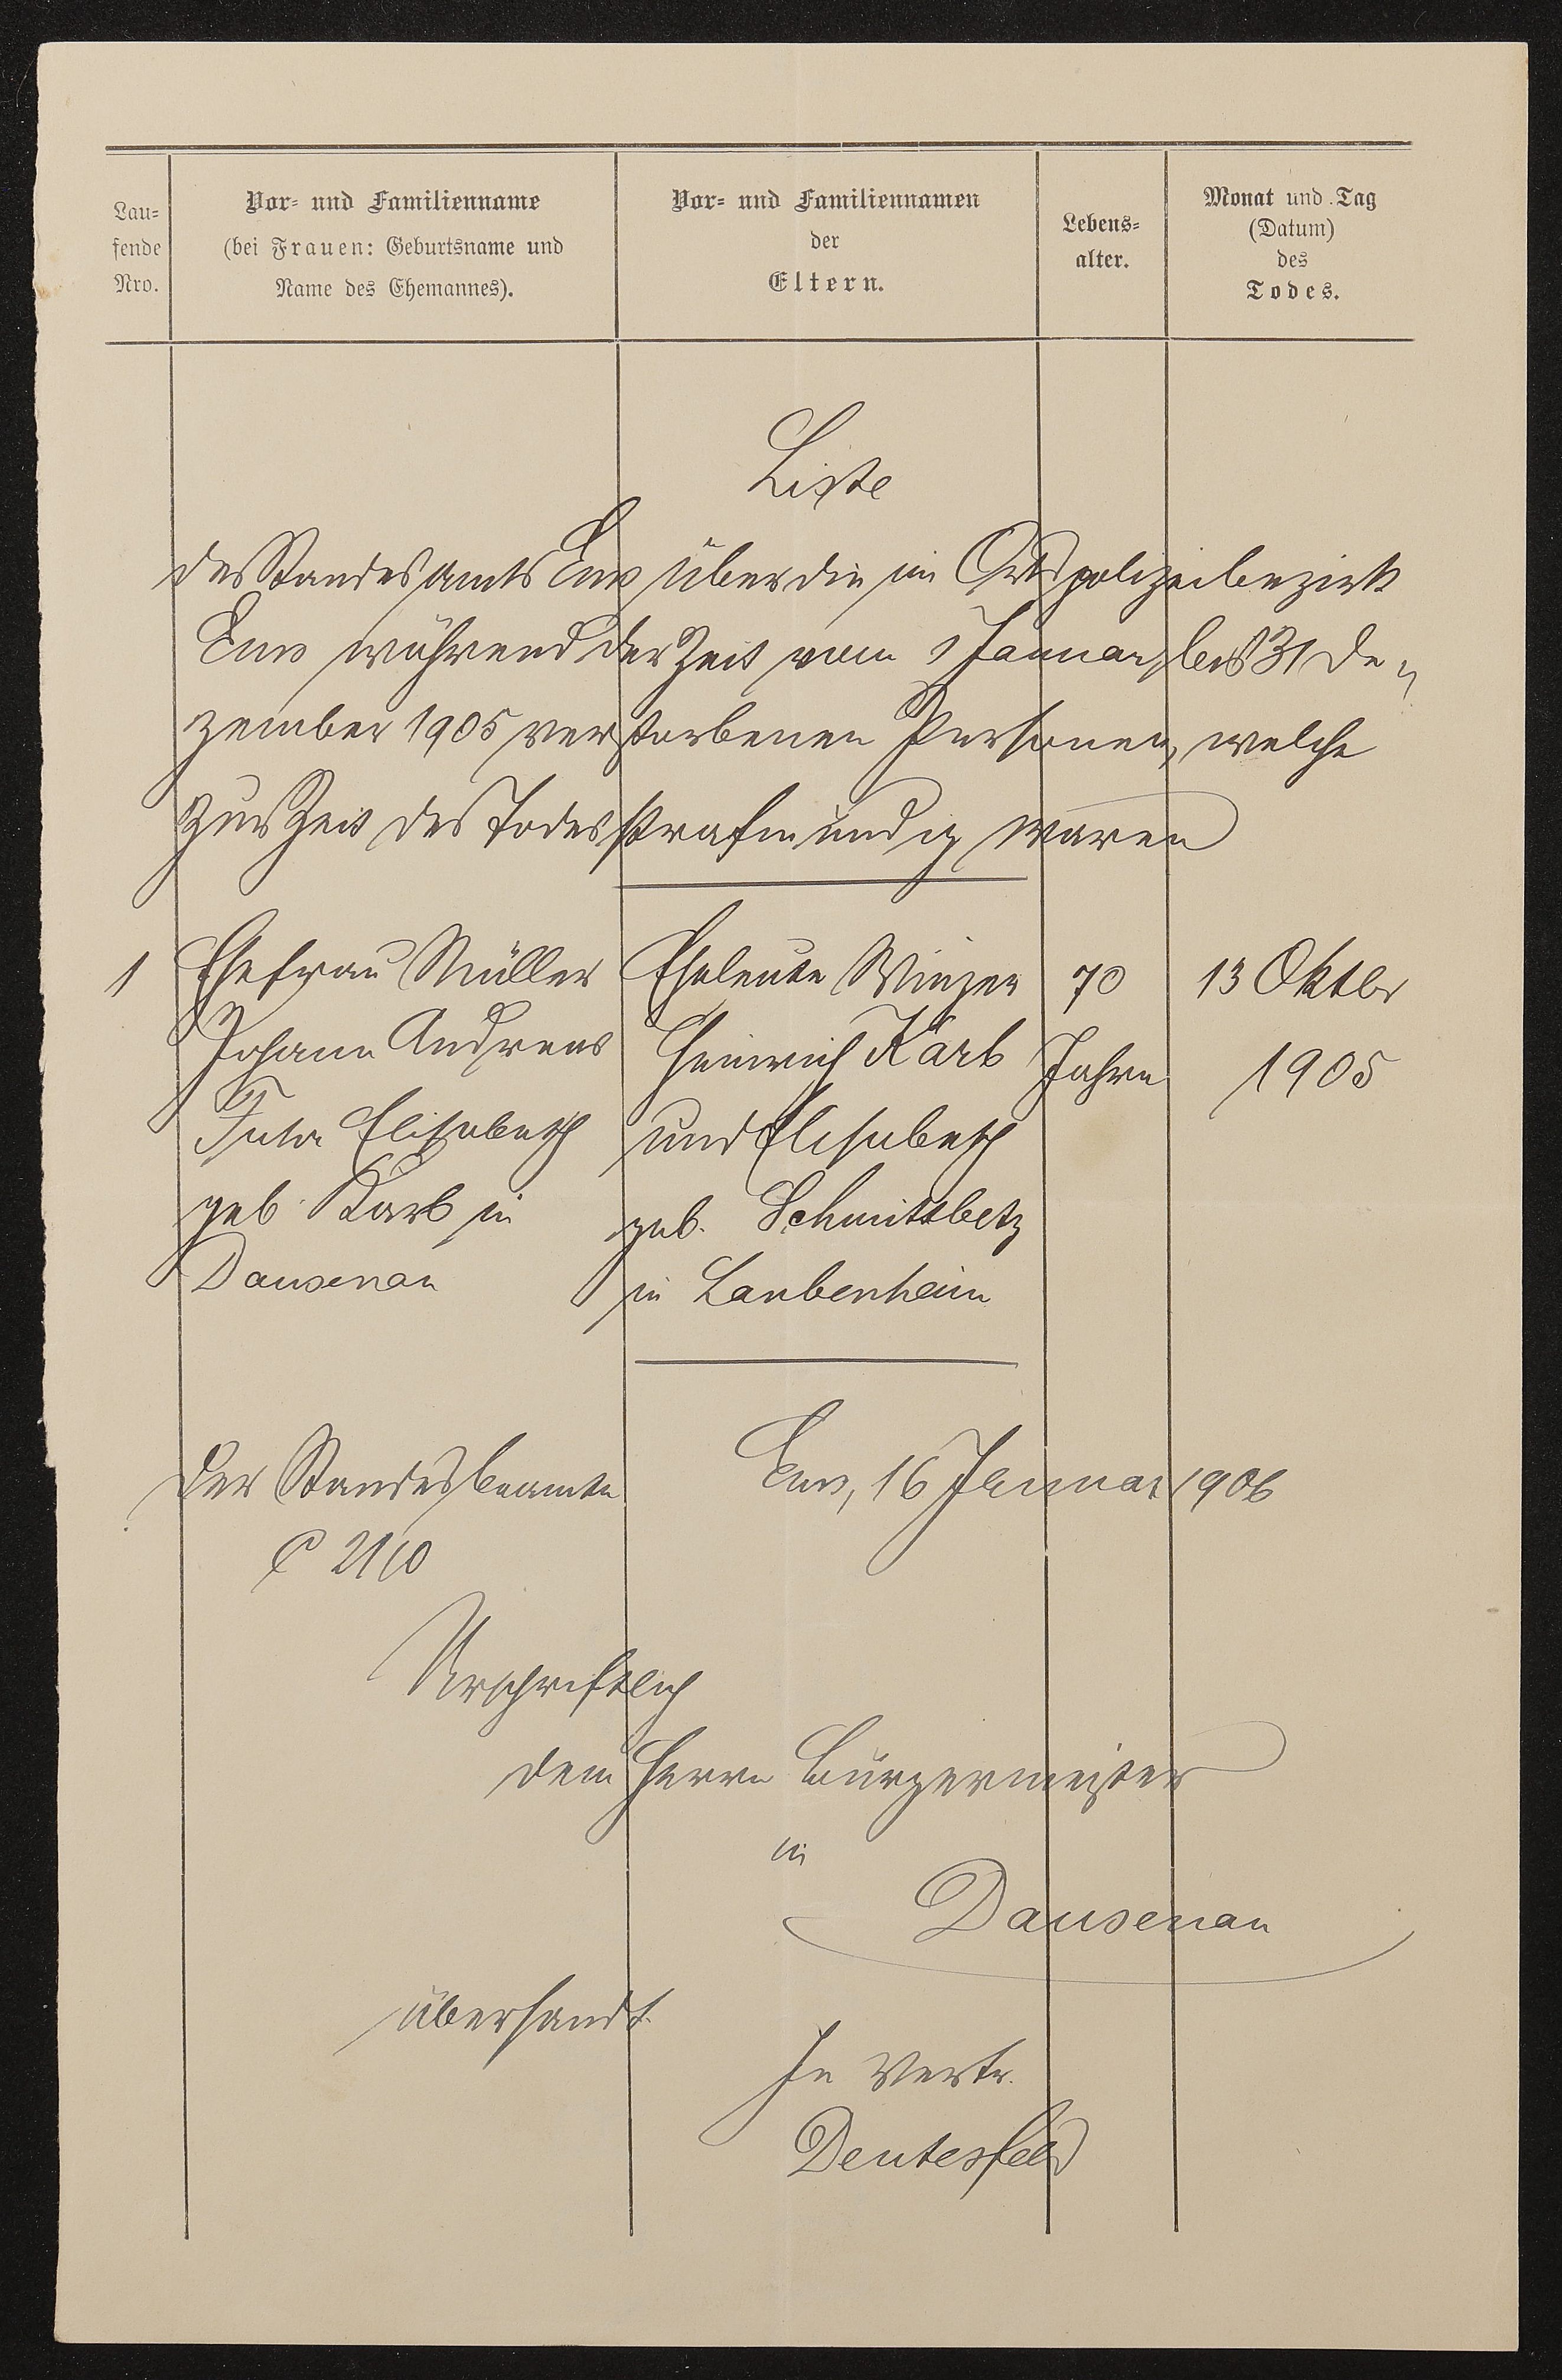 Lau=
fende
Nro.
Vor= und Familienname
(bei Frauen: Geburtsname und
Name des Ehemannes).
Vor= und Familiennamen
der
Eltern.
Lebens=
alter.
Monat und Tag
(Datum)
des
Todes.
Liste
des Standesamts Ems über die im Ortspolizeibezirk
Ems während der Zeit vom 1 Januar bis 31 De=
zember 1905 verstorbenen Personen, welche
zur Zeit des Todes strafmündig waren
1
Ehefrau Müller
Johann Andreas
Elisabeth
geb. Karb in
Dausenau
Eheleute Winzer
Heinrich Karb
und Elisabeth
geb. Schmittbetz
in Laubenheim
70
Jahre
13 Oktbr
1905
Der Standesbeamte
Ems, 16 Januar 1906
Urschriftlich
dem Herrn Bürgermeister
in
Dausenau
übersandt.
In Vertr.
Deutesfeld